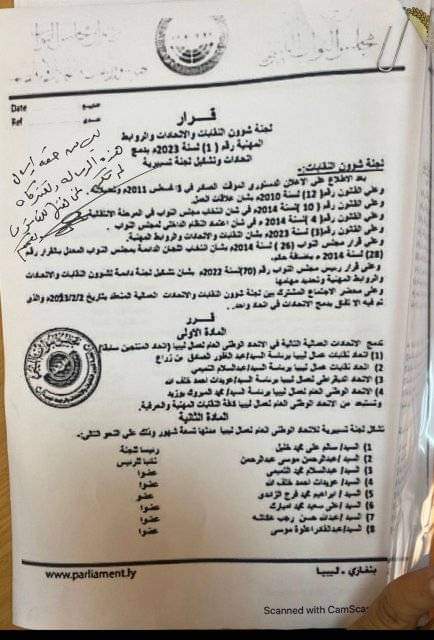 مجلس النواب الليبي
Date التاريخ
Ref
قرار
لجنة شؤون النقابات والاتحادات والروابط
المهنية رقم (1) لسنة 2023م بدمج
اتحادات وتشكيل لجنة تسييرية
لجنة شؤون النقابات:-
بعد الاطلاع على الاعلان الدستوري المؤقت الصادر في 3 أغسطس 2011م وتعديلاته.
وعلى القانون رقم (12) لسنة 2010م بشأن علاقات العمل.
وعلى القانون رقم (10) لسنة 2014م في شان انتخاب مجلس النواب في المرحلة الانتقالية
وعلى القانون رقم (4) لسنة 2014م في شان اعتماد النظام الداخلي لمجلس النواب.
وعلى القانون رقم(3) لسنة 2023م بشأن النقابات والاتحادات والروابط المهنية.
وعلى قرار مجلس النواب (26) لسنة 2014م بشأن انتخاب اللجان الدائمة بمجلس النواب المعدل بالقرار رقم
(28) لسنة 2014م بإضافة حكم.
وعلى قرار رئيس مجلس النواب رقم (70)لسنة 2022م بشأن تشكيل لجنة دائمة لشؤون النقابات والاتحادات
والروابط المهنية وتحديد مهامها
وعلى محضر الاجتماع المشترك بين لجنة شؤون النقابات و الاتحادات العمالية المنعقد بتاريخ 2023/2/2م والذي
تم فيه الاتفاق بدمج الاتحادات في اتحاد واحد.
قرر
المادة الأولى
تدمج الاتحادات العمالية التالية في الاتحاد الوطني العام لعمال ليبيا (اتحاد المنتجين سابقا)
1) اتحاد نقابات عمال ليبيا برئاسة السيد/عبد الغفور الصادق بن زراع
2) اتحاد نقابات عمال ليبيا برئاسة السيد/عبدالسلام التميمي
3) الاتحاد الديمقراطي لعمال ليبيا برئاسة السيد/عويدات احمد خلف الله
4) الاتحاد الوطني العام لعمال ليبيا برئاسة السيد/ محمد المبروك بوزيد
وتستبعد من الاتحاد الوطني العام لعمال ليبيا كافة النقابات المهنية والحرفية.
المادة الثانية
تشكل لجنة تسييرية للاتحاد الوطني العام لعمال ليبيا مدتها تسعة شهور وذلك على النحو التالي:-
1) السيد/ سالم على محمد خليل رئيسا للجنة
2) السيد / عبدالرحمن موسى عبدالرحمن نائبا للرئيس
3) السيد/عبدالسلام محمد التميمي عضوا
4) السيد/ عويدات احمد خلف الله عضوا
5) السيد / ابراهيم محمد فرج الزائدي عضو
6) السيد/ على سعيد محمد امبارك عضوا
7) السيد/ عبدالله حسن رجب عكاشه عضوا
8) السيد/عبدالقادر اعثوة موسى عضوا
www.parliament.ly بنغازي - ليبيا
Scanned with CamScan